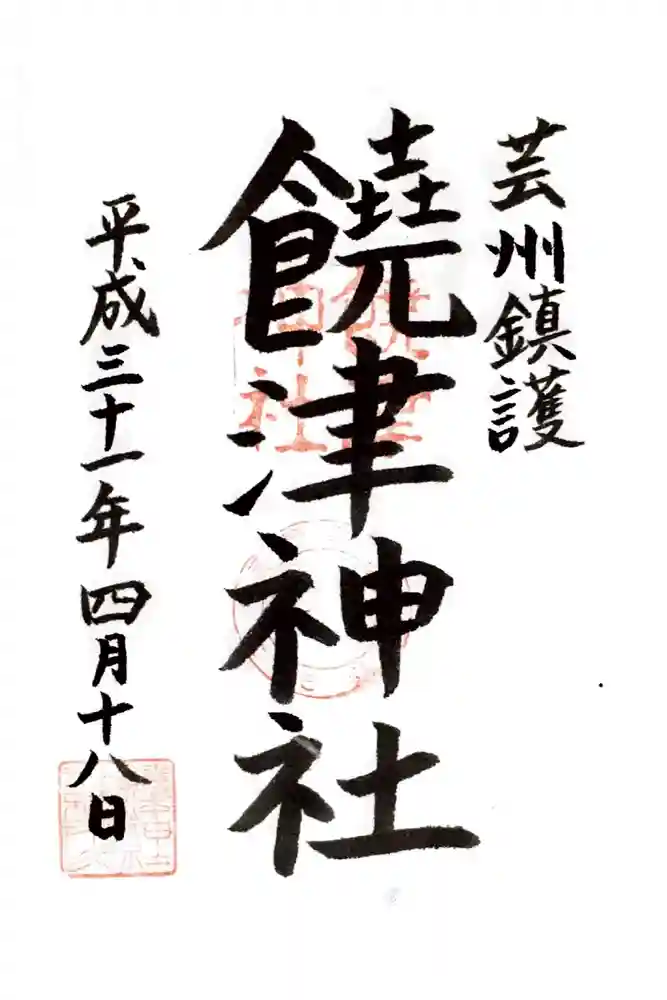 芸州鎮護
饒津神社
平成三十一年四月十八日